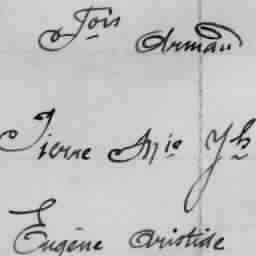 Fois Arman
Pierre Mie Jh
Eugène Aristide